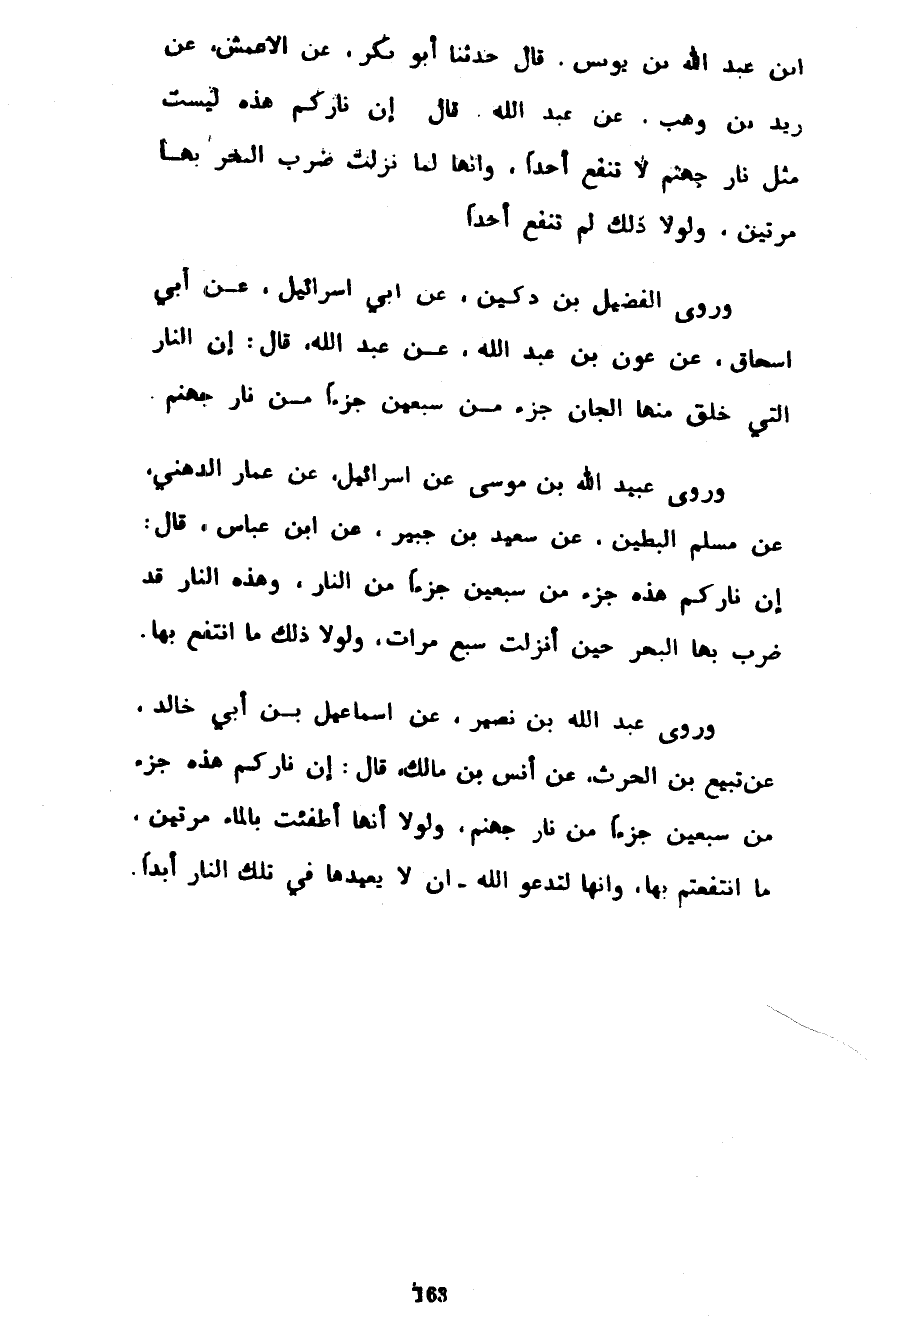 ابن عبد الله بن يونس . قال حدثنا أبو بكر ، عن الاعمش، عن
زيد بن وهب ، عن عبد الله . قال إن ناركم هذه ليست
مثل نار جهنم لا تنفع أحداً ، وانها لما نزلت ضرب البحر بهـا
مرتين ، ولولا ذلك لم تنفع أحداً
وروى الفضيل بن دكـين ، عن ابي اسرائيل ، عـن أبي
اسحاق ، عن عون بن عبد الله ، عـن عبد الله، قال : إن النار
التي خلق منها الجان جزء مـن سبعين جزءاً مـن نار جهنم .
وروى عبيد الله بن موسى عن اسرائيل، عن عمار الدهني،
عن مسلم البطين ، عن سعيد بن جبير ، عن ابن عباس ، قال :
إن ناركم هذه جزء من سبعين جزءاً من النار ، وهذه النار قد
ضرب بها البحر حين أنزلت سبع مرات، ولولا ذلك ما انتفع بها.
وروى عبد الله بن نصير ، عن اسماعيل بـن أبي خالد ،
عن تبيع بن الحرث، عن أنس بن مالك، قال : إن ناركم هذه جزء
من سبعين جزءاً من نار جهنم، ولولا أنها أطفئت بالماء مرتين ،
ما انتفعتم بها، وانها لتدعو الله ـ ان لا يعيدها في تلك النار أبداً.
163